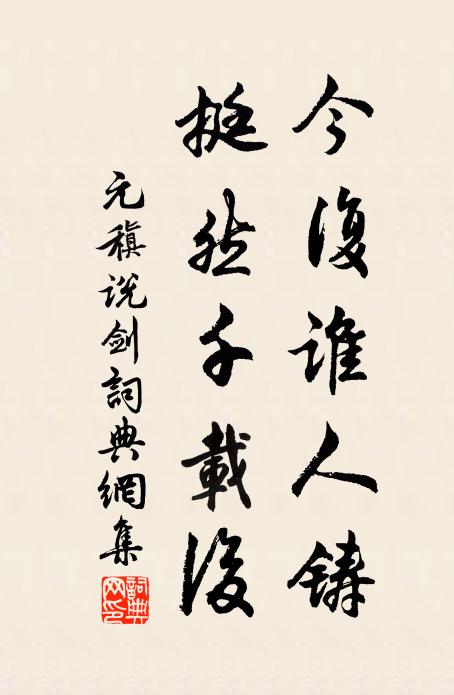 今復誰人鑄
挺然千載後
元稹説劍詞典網集
詞典网印